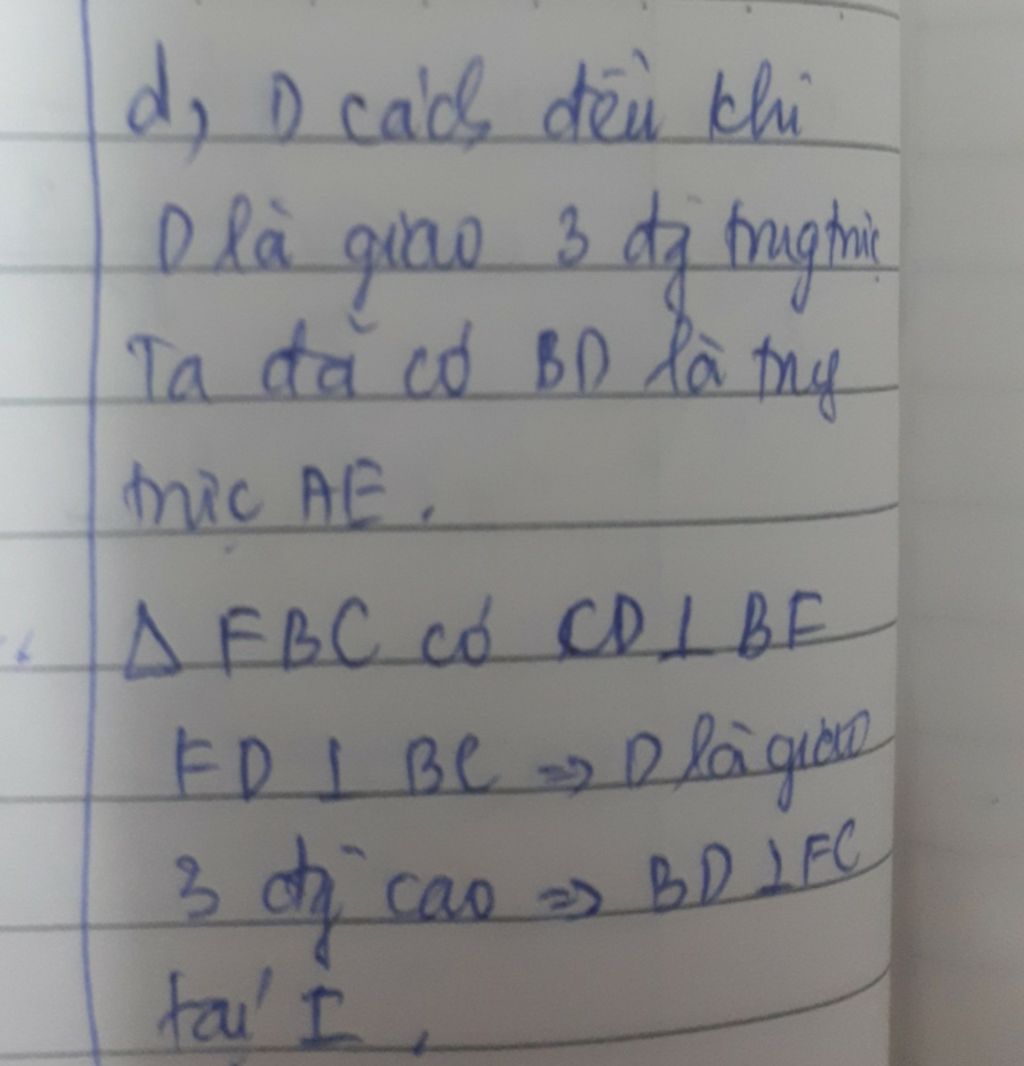 d, D cách đều khi
D là giao 3 đg trug trực
Ta đã có BD là trug
trực AE.
Δ FBC có CD ⊥ BF
FD ⊥ BC => D là giao
3 đg cao => BD ⊥ FC
tại I,